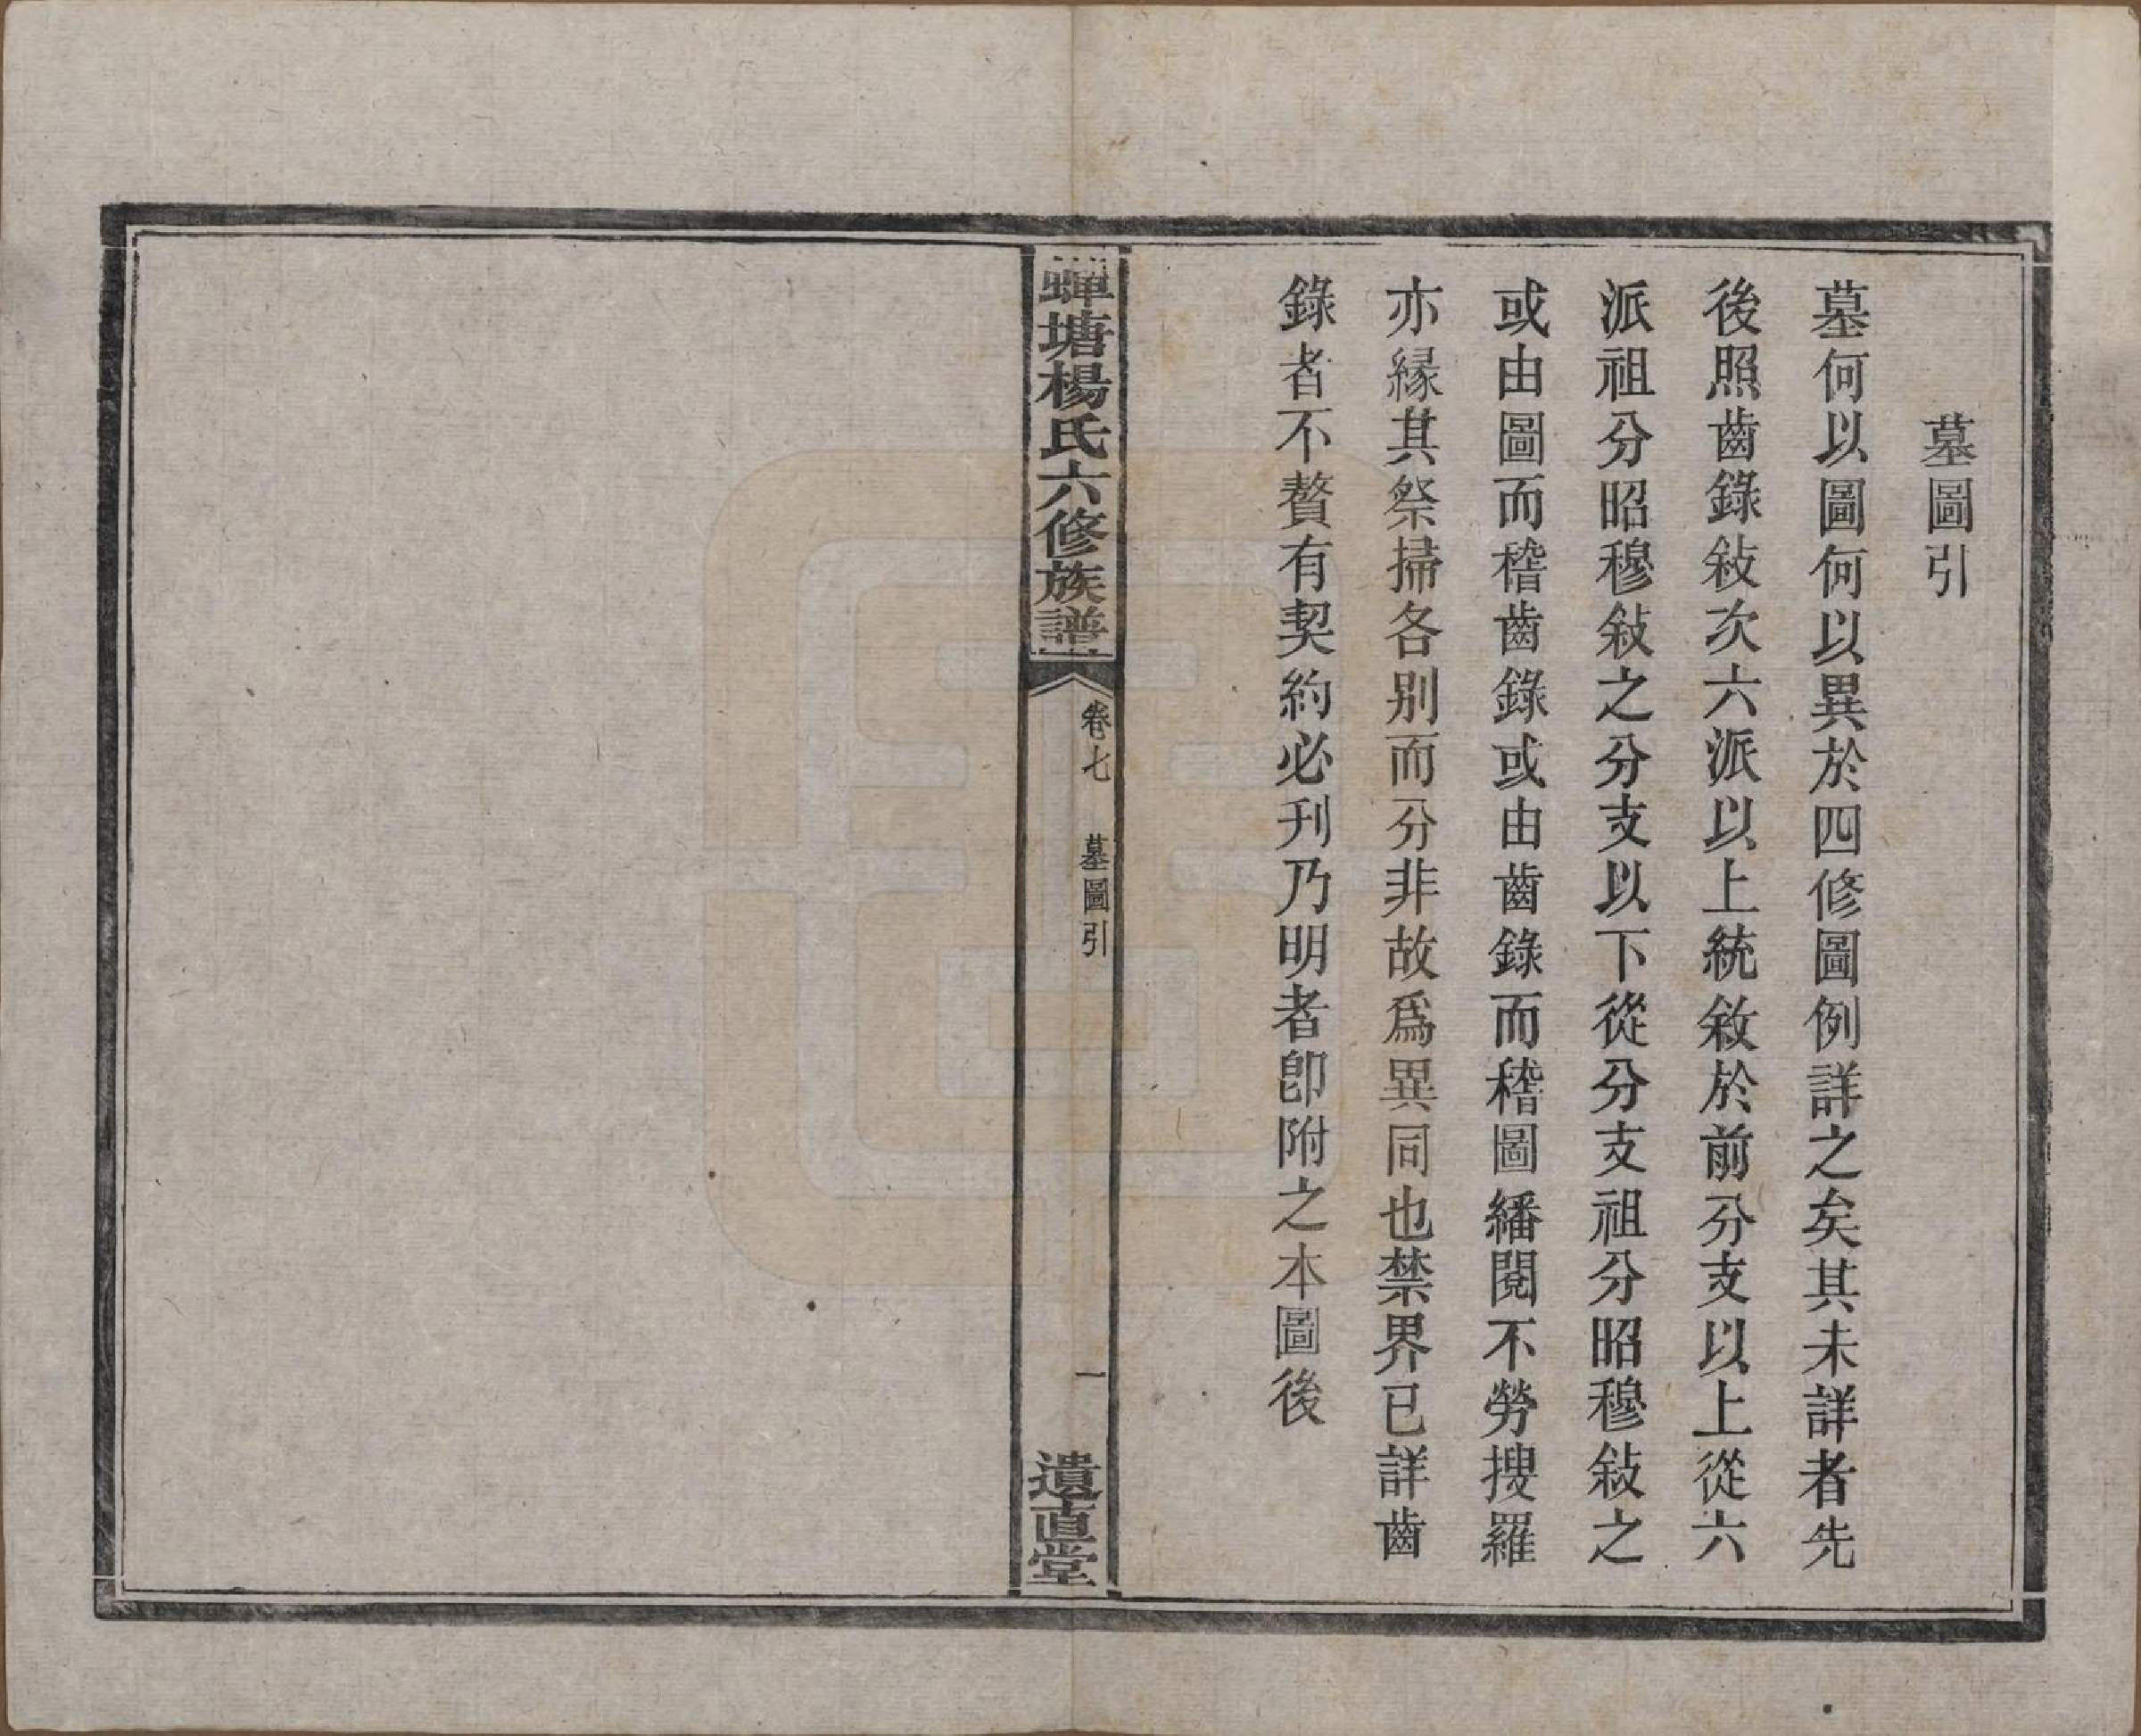 墓圖引
墓何以圖何以異於四修圖例詳之矣其未詳者先
後照齒錄敍次六派以上統敘於前分支以上從六
派祖分昭穆敍之分支以下從分支祖分昭穆敍之
或由圖而稽齒錄或由齒錄而稽圖繙閱不勞搜羅
亦緣其祭掃各別而分非故爲異同也禁界已詳齒
錄者不贅有契約必刋乃明者卽附之本圖後
蟬塘楊氏六修族譜
卷七
墓圖引
一
遺直堂